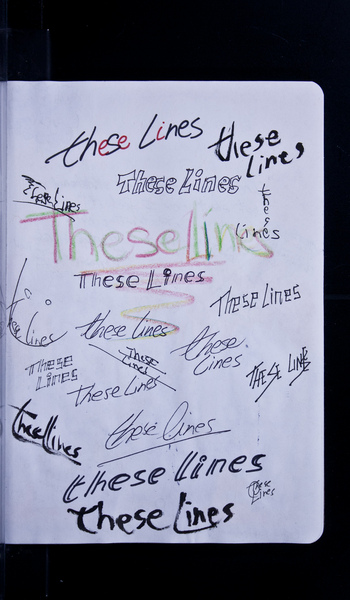 these Lines
these
lines
These Lines
these Lines
these
Lines
These Lines
These Lines
These Lines
these Lines
these lines
these
Lines
These
Lines
These
Lines
THESE LINES
these Lines
these lines
these lines
these lines
these
Lines
these Lines